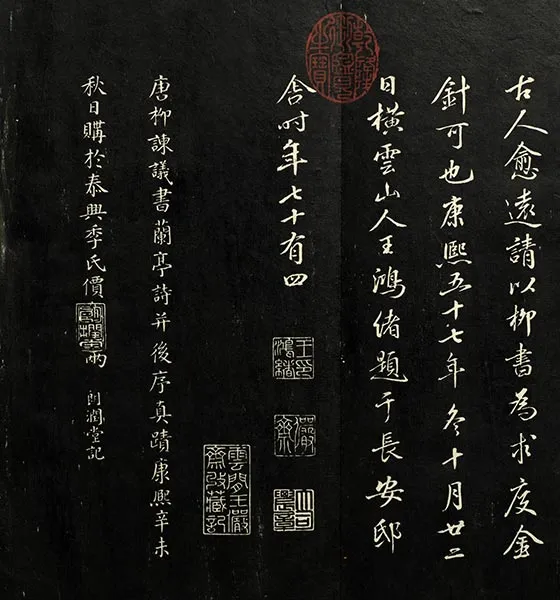 古人愈遠請以柳書為求度金
針可也康熙五十七年冬十月廿二
日橫雲山人王鴻緒題于長安邸
舍時年七十有四
唐柳諫議書蘭亭詩并後序真蹟康熙辛未
秋日購於泰興季氏價
兩
朗潤堂記
王印
鴻緒
儼齋
雲間王儼
齋收藏記